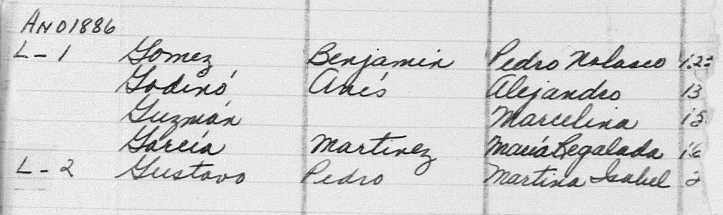 AÑO 1886
L-1 Gomez Benjamin Pedro Nolasco 12
Godinó Anés Alejandro 13
Guzmán Marcelina 15
García Martinez María Regalada 16
L-2 Gustavo Pedro Martina Isabel 2